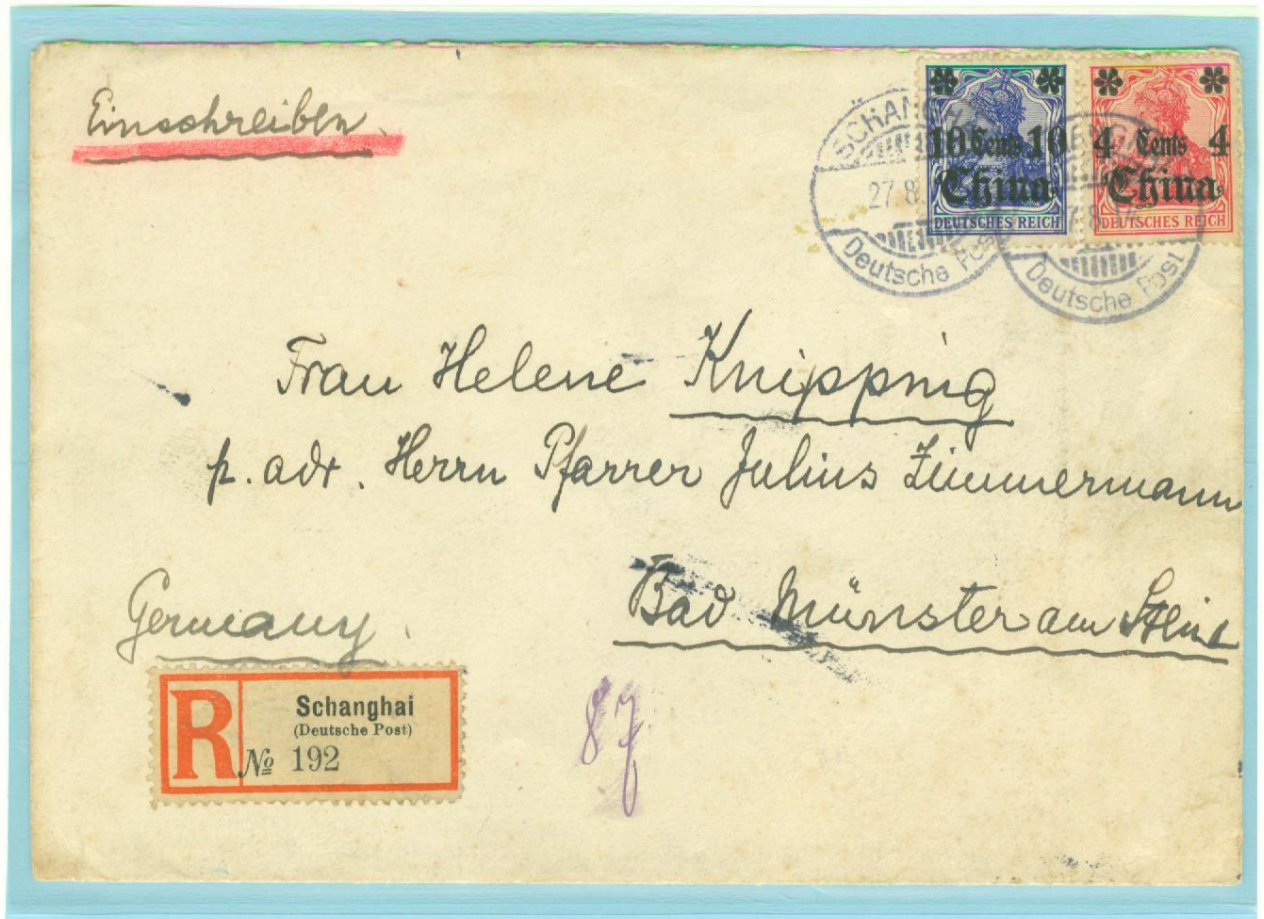 Einschreiben.
10 Cents 10
China
DEUTSCHES REICH
4 Cents 4
China
DEUTSCHES REICH
27 8
Deutsche Post
Deutsche Post
Frau Helene Knipping
p. adr. Herrn Pfarrer Julius Zimmermann
Bad Münster am Stein
Germany.
R
Schanghai
(Deutsche Post)
№ 192